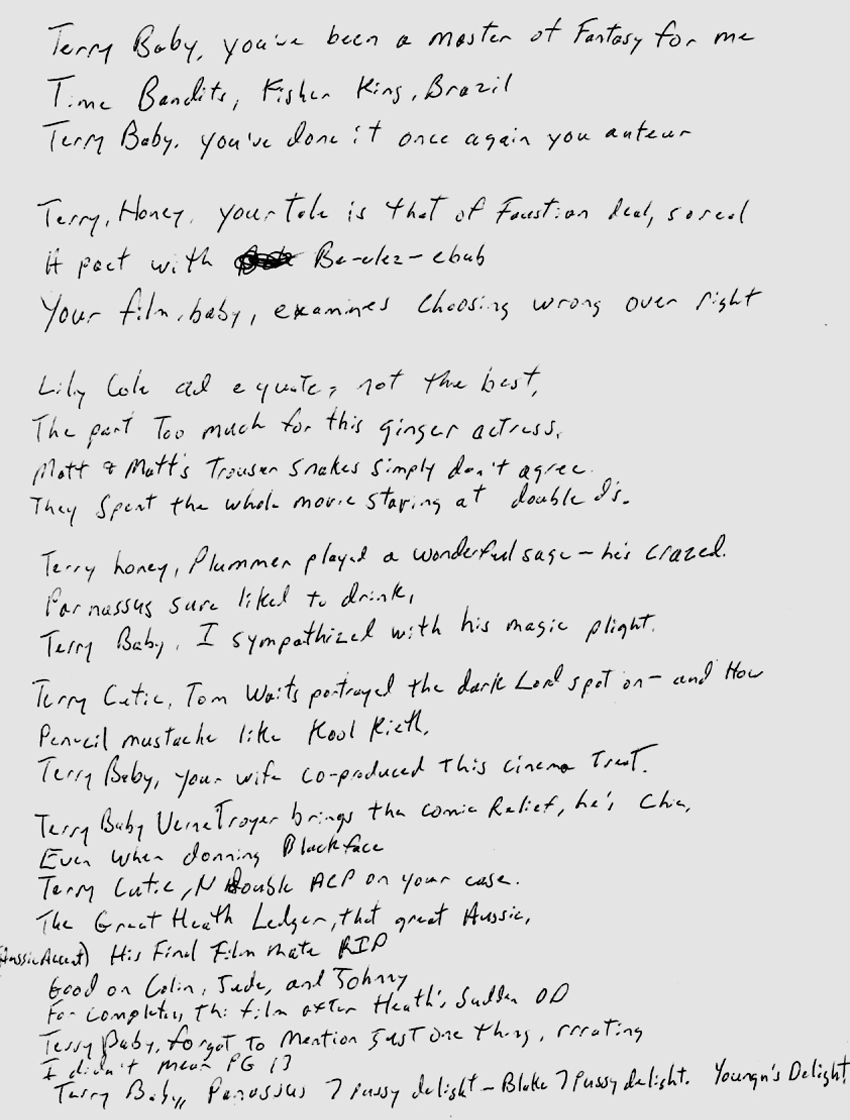 Terry Baby, you've been a master of Fantasy for me
Time Bandits, Fisher King, Brazil
Terry Baby. you've done it once again you auteur
Terry, Honey, your tale is that of Faustian deal, so real
A pact with Be-elez-ebub
Your film, baby, examines Choosing wrong over right
Lily Cole adequate, not the best,
The part Too much for this ginger actress.
Matt & Matt's Trouser Snakes simply don't agree.
They Spent the whole movie staring at double D's.
Terry honey, Plummer played a wonderful sage - he's crazed.
Parnassus sure liked to drink,
Terry Baby, I sympathized with his magic plight.
Terry Cutie, Tom Waits portrayed the dark Lord spot on - and How
Pencil mustache like Kool Kieth,
Terry Baby, your wife co-produced this cinema Treat.
Terry Baby Verne Troyer brings the comic Relief, he's Chic,
Even when donning Blackface
Terry Cutie, N Double ACP on your case.
The Great Heath Ledger, that great Aussie,
(Aussie Accent) His Final Film mate RIP
Good on Colin, Jude, and Johnny
For completing this film after Heath's Sudden OD
Terry Baby, forgot to mention Just One thing, rrrating
I didn't mean PG 13
Terry Baby, Parnossus 7 pussy delight - Blake 7 Pussy delight. Youngn's Delight!